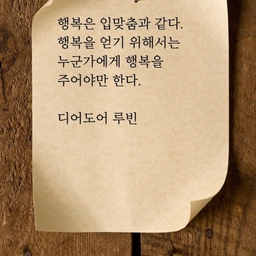 행복은 입맞춤과 같다.
행복을 얻기 위해서는
누군가에게 행복을
주어야만 한다.
디어도어 루빈